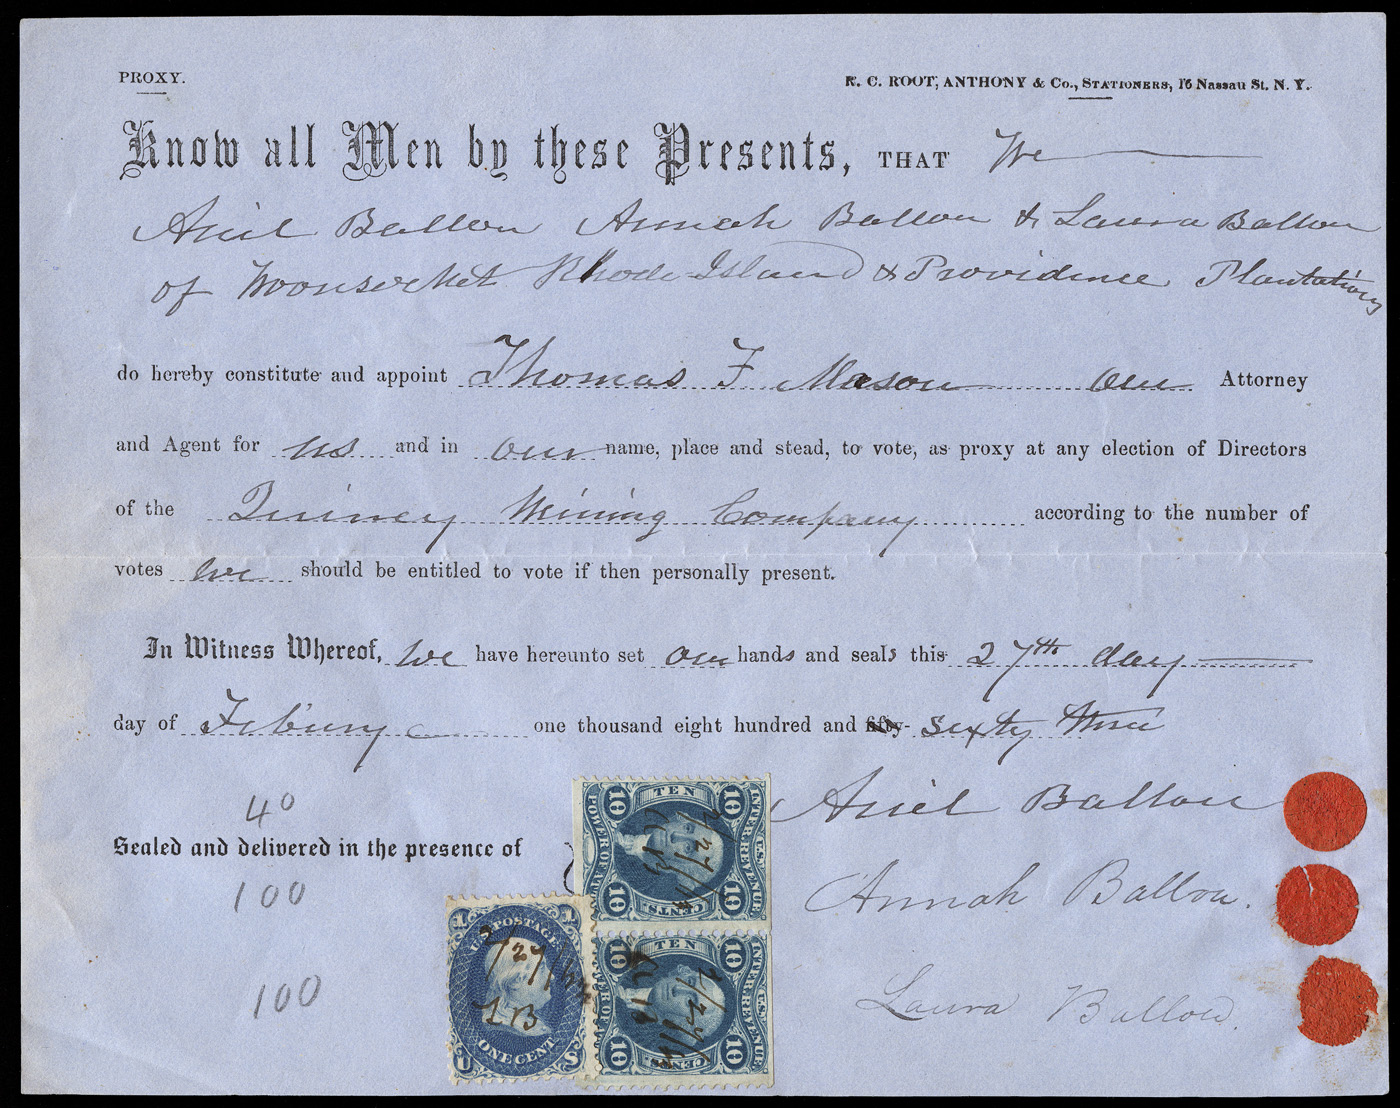 PROXY.
R. C. ROOT, ANTHONY & Co., STATIONERS, 16 Nassau St. N. Y.
Know all Men by these Presents, THAT We
Ariel Ballou Annah Ballou & Laura Ballou
of Woonsocket Rhode-Island & Providence Plantations
do hereby constitute and appoint Thomas F Mason our Attorney
and Agent for us and in our name, place and stead, to vote, as proxy at any election of Directors
of the Quincy Mining Company according to the number of
votes we should be entitled to vote if then personally present.
In Witness Whereof, we have hereunto set our hands and seals this 27th day
day of Febury one thousand eight hundred and fifty- sixty three
Ariel Ballou
40
Sealed and delivered in the presence of
100
Annah Ballou.
100
Laura Ballou.
10 TEN 10
POWER OF ATT
INTER. REVENUE
U.S.
10 CENTS 10
10 TEN 10
INTER. REVENUE
U.S.
10 CENTS 10
1 U.S. POSTAGE 1
2/27/63
U ONE CENT S